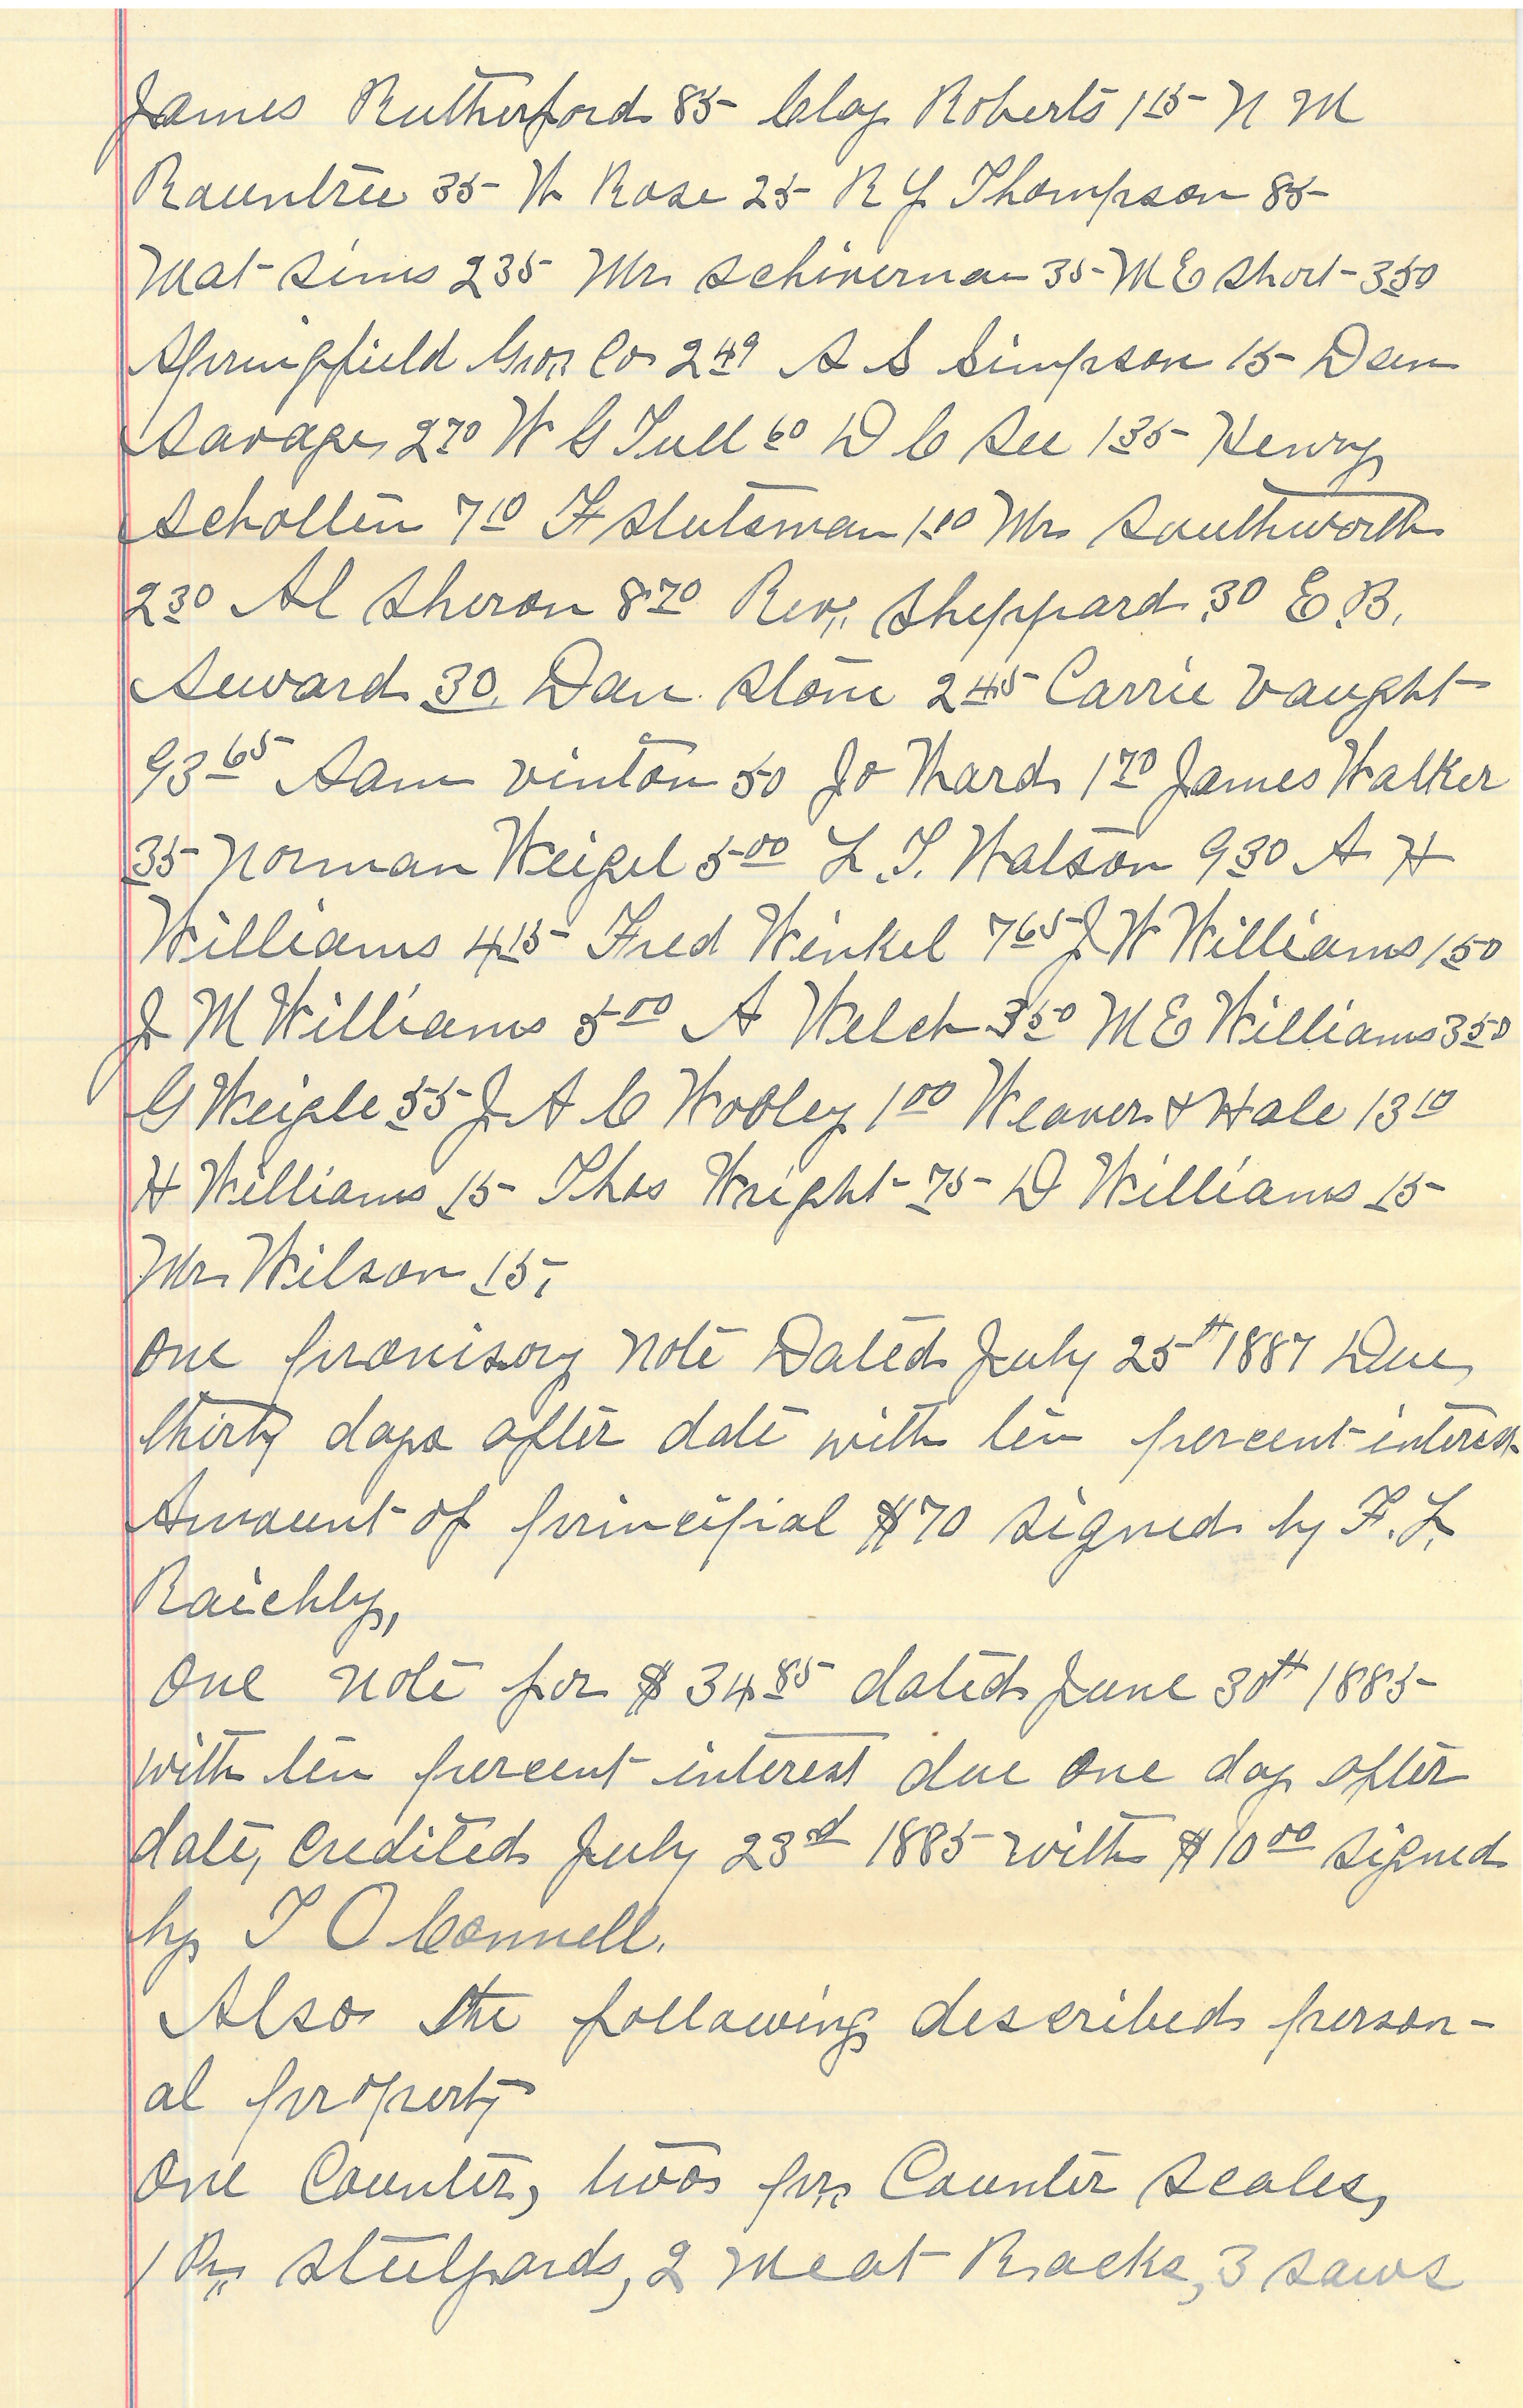 James Rutherford 85 Clay Roberts 1 15 N M
Rauntree 35 W Rose 25 R Y Thompson 85
Mat Sims 2 35 Mr Schiverman 35 M E Short 3 50
Springfield Gro. Co 2 49 A S Simpson 15 Dan
Savage 2 70 W G Tull 60 D C See 1 35 Henry
Schollin 7 10 F Stutsman 1.80 Mr Southworth
2 30 Al Sheron 8 70 Rev. Sheppard 30 E. B.
Seward 30 Dan Stone 2 45 Carrie Vaught
93 65 Sam Vinton 50 Jo Ward 1 70 James Walker
35 Norman Weigel 5 00 L. T. Watson 9 30 A H
Williams 4 15 Fred Winkel 7 65 J W Williams 1 50
J M Williams 5 00 A Welch 3 50 M E Williams 3 50
G Weigle 55 J A C Wooley 1 00 Weaver & Hale 13 10
H Williams 15 Thos Wright 75 D Williams 15
Mr Wilson 15,
One promisory note Dated July 25th 1887 Due
thirty days after date with ten percent interest
Amount of principial $70 signed by F. L.
Raichly,
One note for $34 85 dated June 30th 1885
with ten percent interest due one day after
date, credited July 23rd 1885 with $10 00 signed
by T O Connell.
Also the following described person-
al property
One Counter, two pr. Counter scales,
1 Pr. Steelyards, 2 Meat Racks, 3 saws